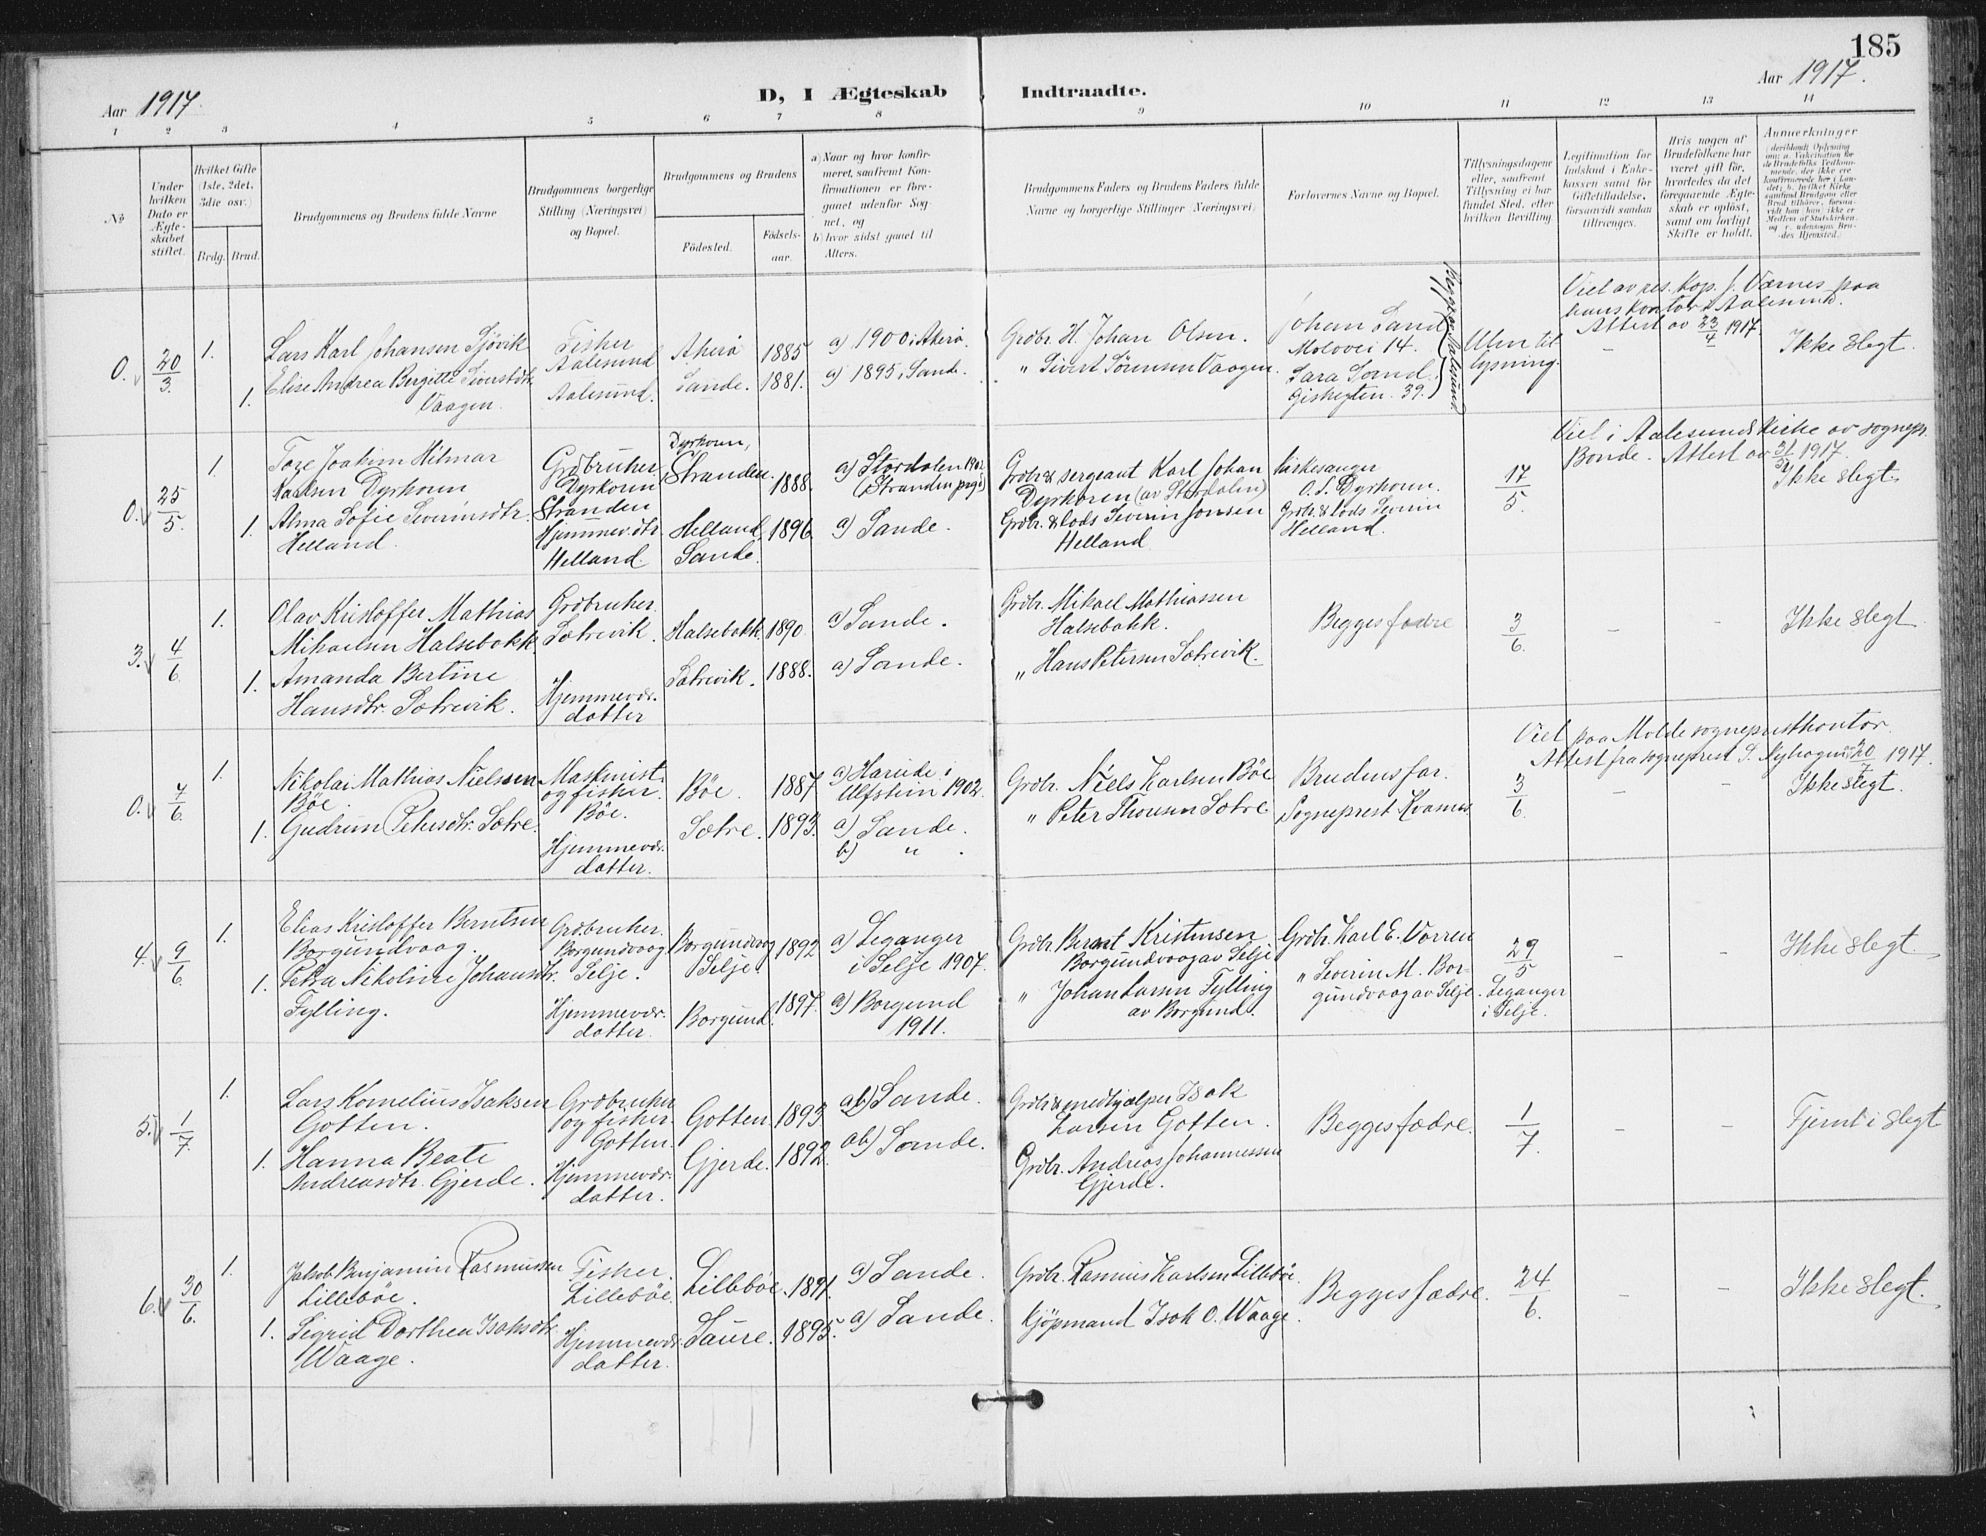 185
Aar 1917.
D, I Ægteskab Indtraadte.
Aar 1917.
1 2 3 4 5 6 7 8 9 10 11 12 13 14
No
Under hvilken Dato er Ægteskabet stiftet.
Hvilket Gifte (1ste, 2det, 3die osv.)
Brdg. Brud.
Brudgommens og Brudens fulde Navne
Brudgommens borgerlige Stilling (Næringsvei) og Bopæl.
Brudgommens og Brudens
Födested.
Födsels-aar.
a) Naar og hvor konfirmeret, saafremt Konfirmationen er foregaaet udenfor Sognet, og
b) hvor sidst gaaet til Alters.
Brudgommens Faders og Brudens Faders fulde Navne og borgerlige Stillinger (Næringsvei)
Forlovernes Navne og Bopæl.
Tillysningsdagene eller, saafremt Tillysning ei har fundet Sted, efter hvilken Bevilling
Legitimation for Indskud i Enkekassen samt for Giftetilladelse, forsaavidt saadan tiltrænges.
Hvis nogen af Brudefolkene har været gift för, hvorledes da det foregaaende Ægteskab er oplöst, samt om lovligt Skifte er holdt.
Anmerkninger
Viel av res. kap. f. Værnes paa
hans kontor i Aalesund.
Attest av 23/4 1917.
0. 20/3 1. Lars Karl Johansen Sjövik
Fisker Aalesund
Akerö 1885
a) 1900 i Akerö.
Grdbr. H. Johan Olsen.
Johan Sand
Molovei 14.
Begge av Aalesund
Uten til lysning.
–
Ikke slegt.
1. Elise Andrea Bergitte Siverstdtr. Vaagen.
Aalesund.
Sande. 1881.
a) 1895, Sande.
" Sivert Sörensen Vaagen.
Lara Sand
39.
Viel i Aalesunds kirke av sognepr.
Bonde. Attest av 31/5 1917.
0. 25/5 1. Joakim Hilmar
Karlsen Dyrkorn
Grdbruker Dyrkorn Stranden
Dyrkorn, Stranden 1888.
a) Stordalen 1902 (Stranden prgj.)
Grdbr. & sergeant Karl Johan
Dyrkoren (av Stordalen)
Kirkesanger
O. L. Dyrkorn.
17/5
Ikke slegt
1. Alma Sofie Severinsdtr. Helland.
Hjemmev. dtr. Helland.
Helland, Sande. 1896.
a) Sande.
Grdbr. & lods Severin Jonsen Helland
Grdbr. & lods Severin Helland.
3. 4/6 1. Olav Kristoffer Mathias
Mikaelsen Halsebakk
Grdbruker. Sætrevik.
Halsebakk. 1890.
a) Sande.
Grdbr. Mikael Mathiassen Halsebakk.
Begges fædre
3/6
– –
Ikke slegt
1. Amanda Bertine
Hansdtr. Sætrevik.
Hjemmevær. datter
Sætrevik. 1888.
a) Sande.
" Hans Petersen Sætrevik.
Viel paa Molde sogneprestkontor
Attest fra sogneprest S. Nyhagen 20/7 1917.
0. 7/6 1. Nikolai Mathias Nielssen Böe.
Maskinist og fisker. Böe.
Böe. 1887.
a) Hareide i Ulfstein 1902.
Grdbr. Niels Karlsen Böe
Brudens far.
3/6
– –
Ikke slegt.
1. Gudrun Petersdtr. Sætre.
Hjemmevær. datter.
Sætre. 1893.
a) Sande.
b) " .
" Peter Thorsen Sætre
Sogneprest Kvames.
4. 9/6 1. Elias Kristoffer Berntsen
Borgundvaag.
Grdbruker. Borgundvaag Selje.
Borgundvaag Selje. 1892
a) Leganger i Selje 1907.
Grdbr. Bernt Kristensen
Borgundvaag av Selje
Grdbr. Karl E. Vorren
29/5
Leganger i Selje.
– –
Ikke slegt
1. Petra Nikoline Johansdtr.
Fylling.
Hjemmevær. datter.
Borgund. 1897.
a) Borgund 1911.
" Johan Larsen Fylling
av Borgund.
" Severin M. Bor-
gundvaag av Selje
5. 1/7 1. Lars Kornelius Isaksen
Gotten.
Grdbruker og fisker. Gotten.
Gotten. 1893
ab) Sande.
Grdbr. & medhjælper Isak
Larsen Gotten.
Begges fædre.
1/7.
– –
Fjernt i slegt
1. Hanna Beate
Andreasdtr. Gjerde.
Hjemmevær. datter.
Gjerde. 1892.
ab) Sande.
Grdbr. Andreas Johannessen
Gjerde.
6. 30/6 1. Jakob Benjamin Rasmussen
Lilleböe.
Fisker. Lilleböe.
Lilleböe. 1891.
a) Sande.
Grdbr. Rasmus Karlsen Lilleböe.
Begges fædre.
24/6.
– –
Ikke slegt.
1. Sigrid Dorthea Isaksdtr.
Waage.
Hjemmevær. datter.
Saure. 1895.
a) Sande.
Kjöpmand Isak O. Waage.